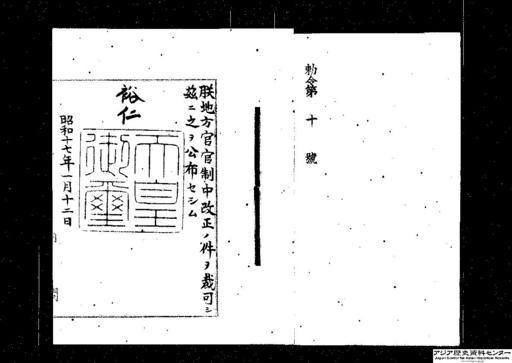 勅令第十號
朕地方官官制中改正ノ件ヲ裁可シ
茲ニ之ヲ公布セシム
裕仁
天皇
御璽
昭和十七年一月十二日
アジア歴史資料センター
Japan Center for Asian Historical Records